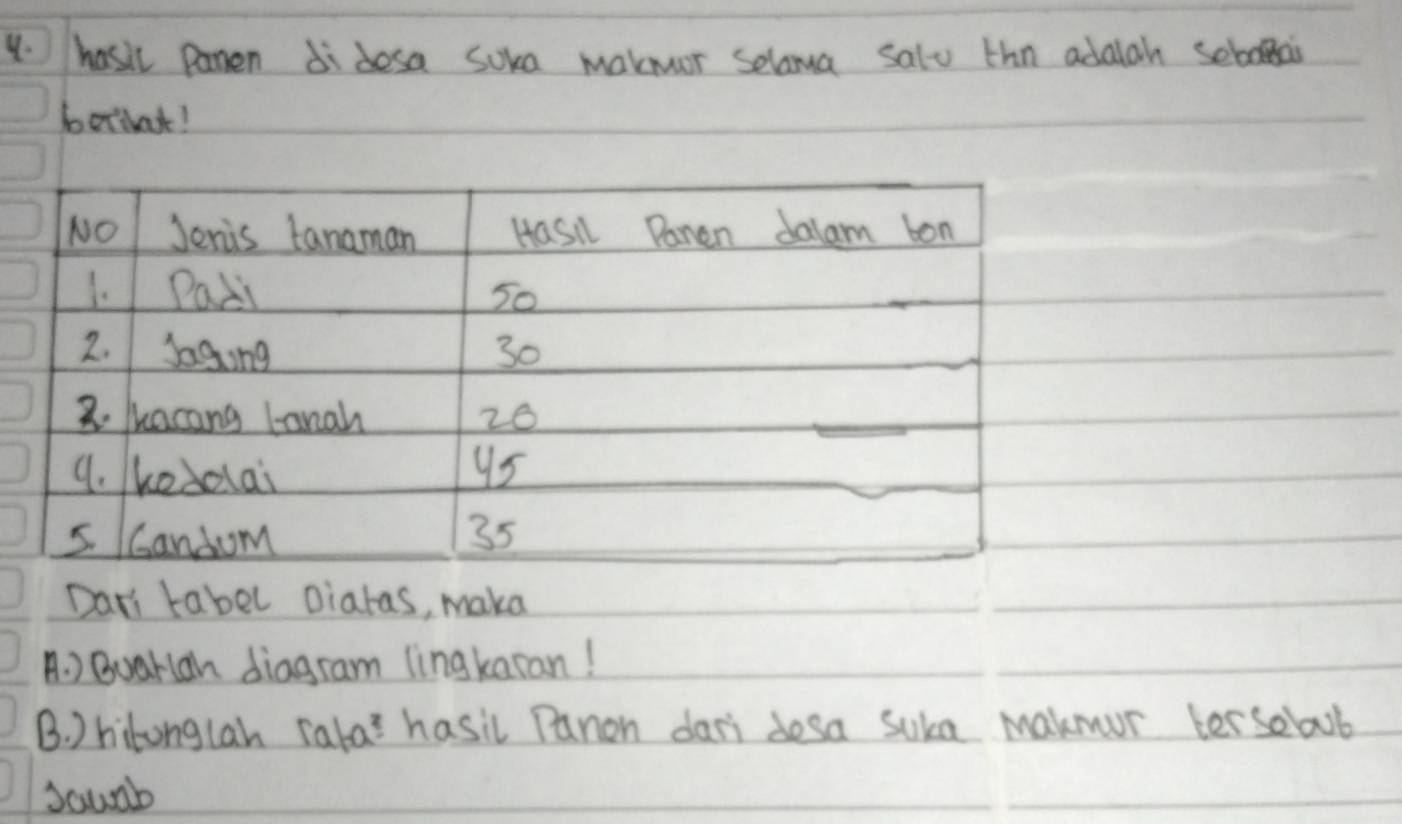 4. hasil Panen di desa suka makmur selama satu thn adalah sebagai
berikut!
No Jenis tanaman Hasil Panen dalam ton
1. Padi 50
2. Jagung 30
3. kacang tanah 20
4. kedelai 45
5. Gandum 35
Dari tabel Diatas, maka
A.) Buatlah diagram lingkaran!
B.) hitunglah rata² hasil Panen dari desa suka makmur tersebut
Jawab